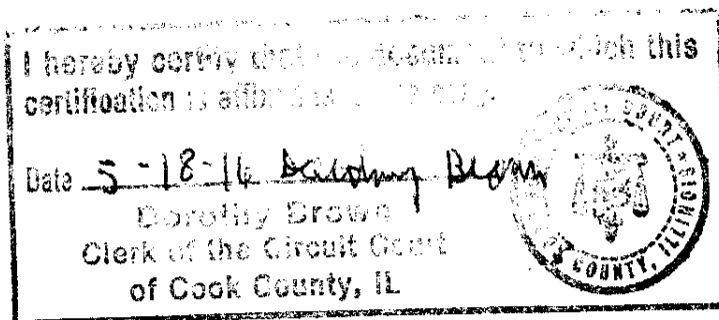 I hereby certify that the document to which this
certification is affixed is a
Date 5-18-16 Dorothy Brown
Dorothy Brown
Clerk of the Circuit Court
of Cook County, IL
COURT
COUNTY, ILLINOIS